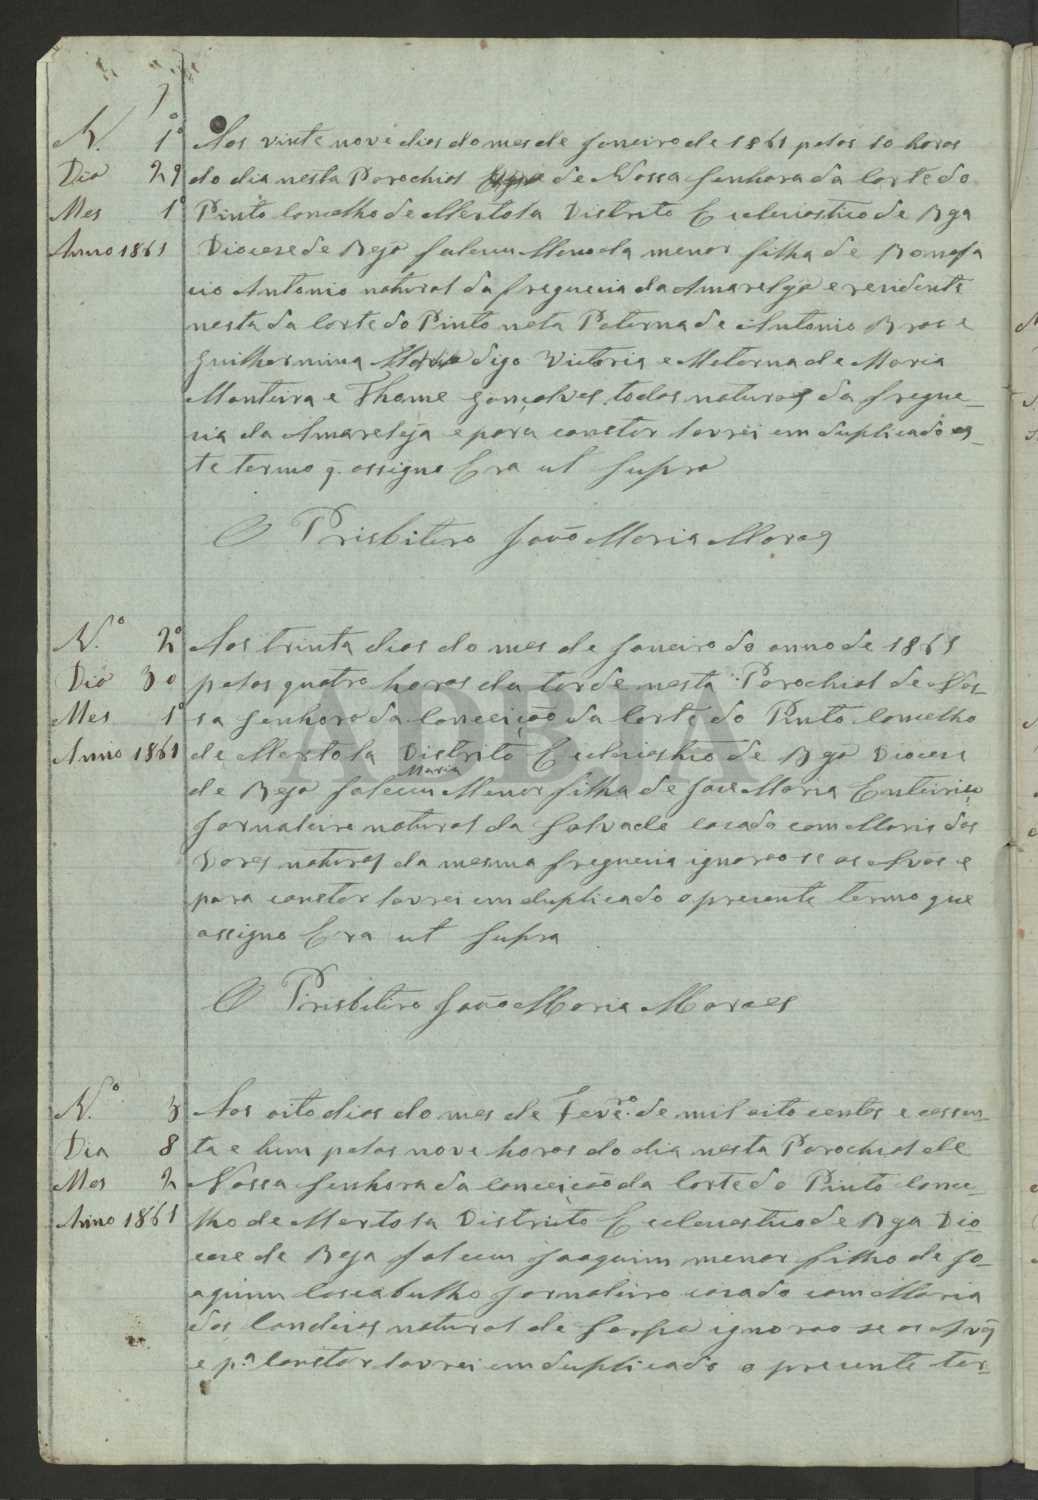 N. 1º
Dia 29
Mes 1º
Anno 1861
Aos vinte nove dias do mes de Janeiro de 1861 pelas 10 horas
do dia nesta Parochial de Nossa Senhora da Corte do
Pinto Concelho de Mertola Distrito Ecleciastico de Bga
Diocese de Beja faleceu menor filha de Bonefa
cio Antonio natural da freguecia da Amareleja e rezidente
nesta da Corte do Pinto neta Paterna de Antonio Bras e
Guilhermina Maria digo Victoria e Meterna de Maria
Monteira e Thome Gonçalves, todos naturas da fregue-
cia da Amareleja e para constar lavrei em duplicado es-
te termo q. assigno Era ut supra
O Prisbitero João Maria Moraes
N.º 2º
Dia 30
Mes 1º
Anno 1861
Aos trinta dias do mes de Janeiro do anno de 1861
pelas quatro horas da tarde nesta Parochial de Nos-
sa Senhora da Conceição da Corte do Pinto Concelho
de Mertola Distrito Ecleciastico de Bga Diocese
Maria
de Beja faleceu Menor filha de Jose Maria
Jornaleiro natural da Salvada casado com Maria das
Dores natural da mesma freguecia ignorão se os Avós e
para constar lavrei em duplicado o precente termo que
assigno Era ut supra
O Prisbitero João Maria Moraes
N.º 3
Dia 8
Mes 2
Anno 1861
Aos oito dias do mes de Fevrº. de mil oito centos e cessen-
ta e hum pelas nove horas do dia nesta Parochial de
Nossa Senhora da Conceição da Corte do Pinto Conce-
lho de Mertola Distrito Ecleciastico de Bga Dio
cese de Beja faleceu Joaquim menor filho de Jo-
aquim Cascabulho Jornaleiro casado com Maria
das Candeias natural de Serpa ignorão se os Avós
e pª constar lavrei em duplicado o precente ter-
ADBJA